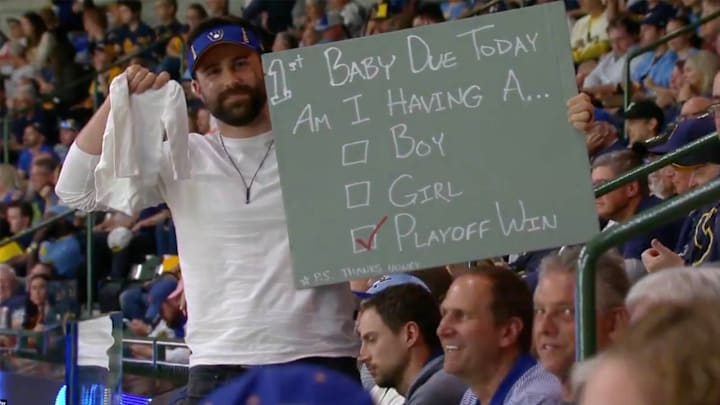 1st Baby Due Today
Am I Having A...
Boy
Girl
Playoff Win
* P.S. Thanks Honey